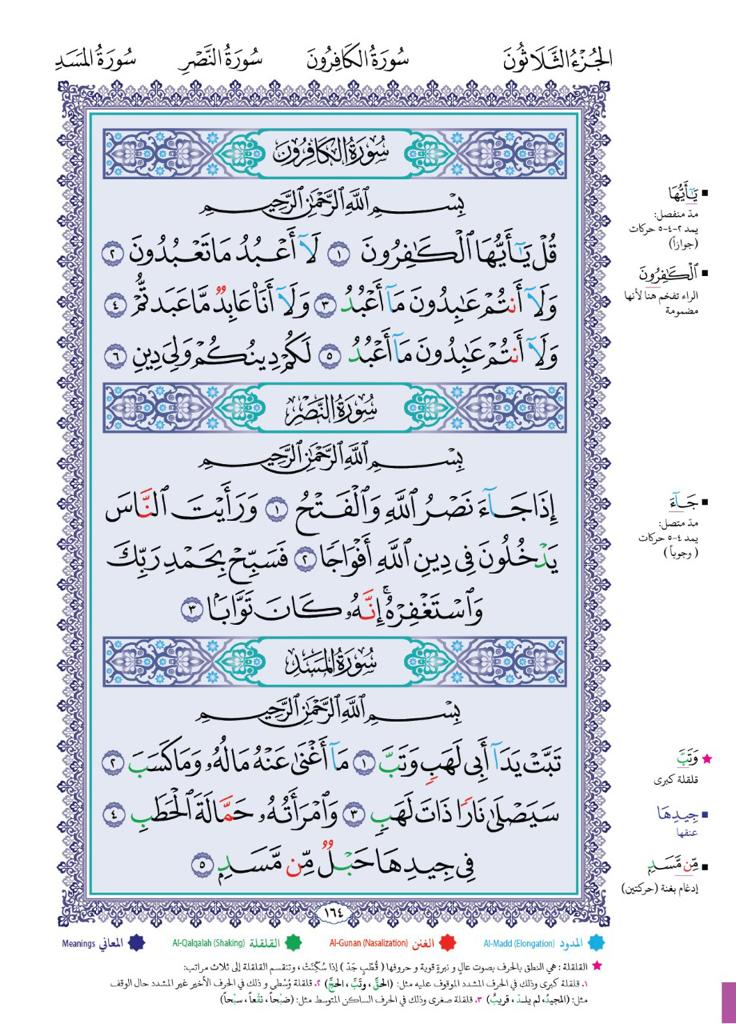 الجُزءُ الثَّلَاثُونَ سُورَةُ الكَافِرُونَ سُورَةُ النَّصْرِ سُورَةُ المَسَدِ
سُورَةُ الكَافِرُونَ
بِسْمِ ٱللَّهِ ٱلرَّحْمَٰنِ ٱلرَّحِيمِ
قُلْ يَٰٓأَيُّهَا ٱلْكَٰفِرُونَ ١ لَآ أَعْبُدُ مَا تَعْبُدُونَ ٢
وَلَآ أَنتُمْ عَٰبِدُونَ مَآ أَعْبُدُ ٣ وَلَآ أَنَا۠ عَابِدٌ مَّا عَبَدتُّمْ ٤
وَلَآ أَنتُمْ عَٰبِدُونَ مَآ أَعْبُدُ ٥ لَكُمْ دِينُكُمْ وَلِىَ دِينِ ٦
سُورَةُ النَّصْرِ
بِسْمِ ٱللَّهِ ٱلرَّحْمَٰنِ ٱلرَّحِيمِ
إِذَا جَآءَ نَصْرُ ٱللَّهِ وَٱلْفَتْحُ ١ وَرَأَيْتَ ٱلنَّاسَ
يَدْخُلُونَ فِى دِينِ ٱللَّهِ أَفْوَاجًا ٢ فَسَبِّحْ بِحَمْدِ رَبِّكَ
وَٱسْتَغْفِرْهُ ۚ إِنَّهُۥ كَانَ تَوَّابًۢا ٣
سُورَةُ المَسَدِ
بِسْمِ ٱللَّهِ ٱلرَّحْمَٰنِ ٱلرَّحِيمِ
تَبَّتْ يَدَآ أَبِى لَهَبٍ وَتَبَّ ١ مَآ أَغْنَىٰ عَنْهُ مَالُهُۥ وَمَا كَسَبَ ٢
سَيَصْلَىٰ نَارًا ذَاتَ لَهَبٍ ٣ وَٱمْرَأَتُهُۥ حَمَّالَةَ ٱلْحَطَبِ ٤
فِى جِيدِهَا حَبْلٌ مِّن مَّسَدٍۭ ٥
١٦٤
يَٰٓأَيُّهَا
مدّ منفصل:
يمد ٢-٤-٥ حركات
(جوازاً)
ٱلْكَٰفِرُونَ
الراء تفخم هنا لأنها
مضمومة
جَآءَ
مدّ متصل:
يمد ٤-٥ حركات
(وجوباً)
وَتَبَّ
قلقلة كبرى
جِيدِهَا
عنقها
مِّن مَّسَدٍ
إدغام بغنة (حركتين)
المدود Al-Madd (Elongation) الغنن Al-Gunan (Nasalization) القلقلة Al-Qalqalah (Shaking) المعاني Meanings
القلقلة : هي النطق بالحرف بصوت عالٍ و نبرةٍ قوية و حروفها ( قُطْبِ جَدْ ) إذا سُكِّنَتْ ، وتنقسم القلقلة إلى ثلاث مراتب:
١. قلقلة كبرى وذلك في الحرف المشدد الموقوف عليه مثل: (الحقّ ، وتبَّ ، الحجّ) ٢. قلقلة وُسْطى و ذلك في الحرف الأخير غير المشدد حال الوقف
مثل: (المجيدُ، لم يلدْ ، قريبٌ) ٣. قلقلة صغرى وذلك في الحرف الساكن المتوسط مثل: (ضَبْحاً ، نقْعاً ، سبْحاً)